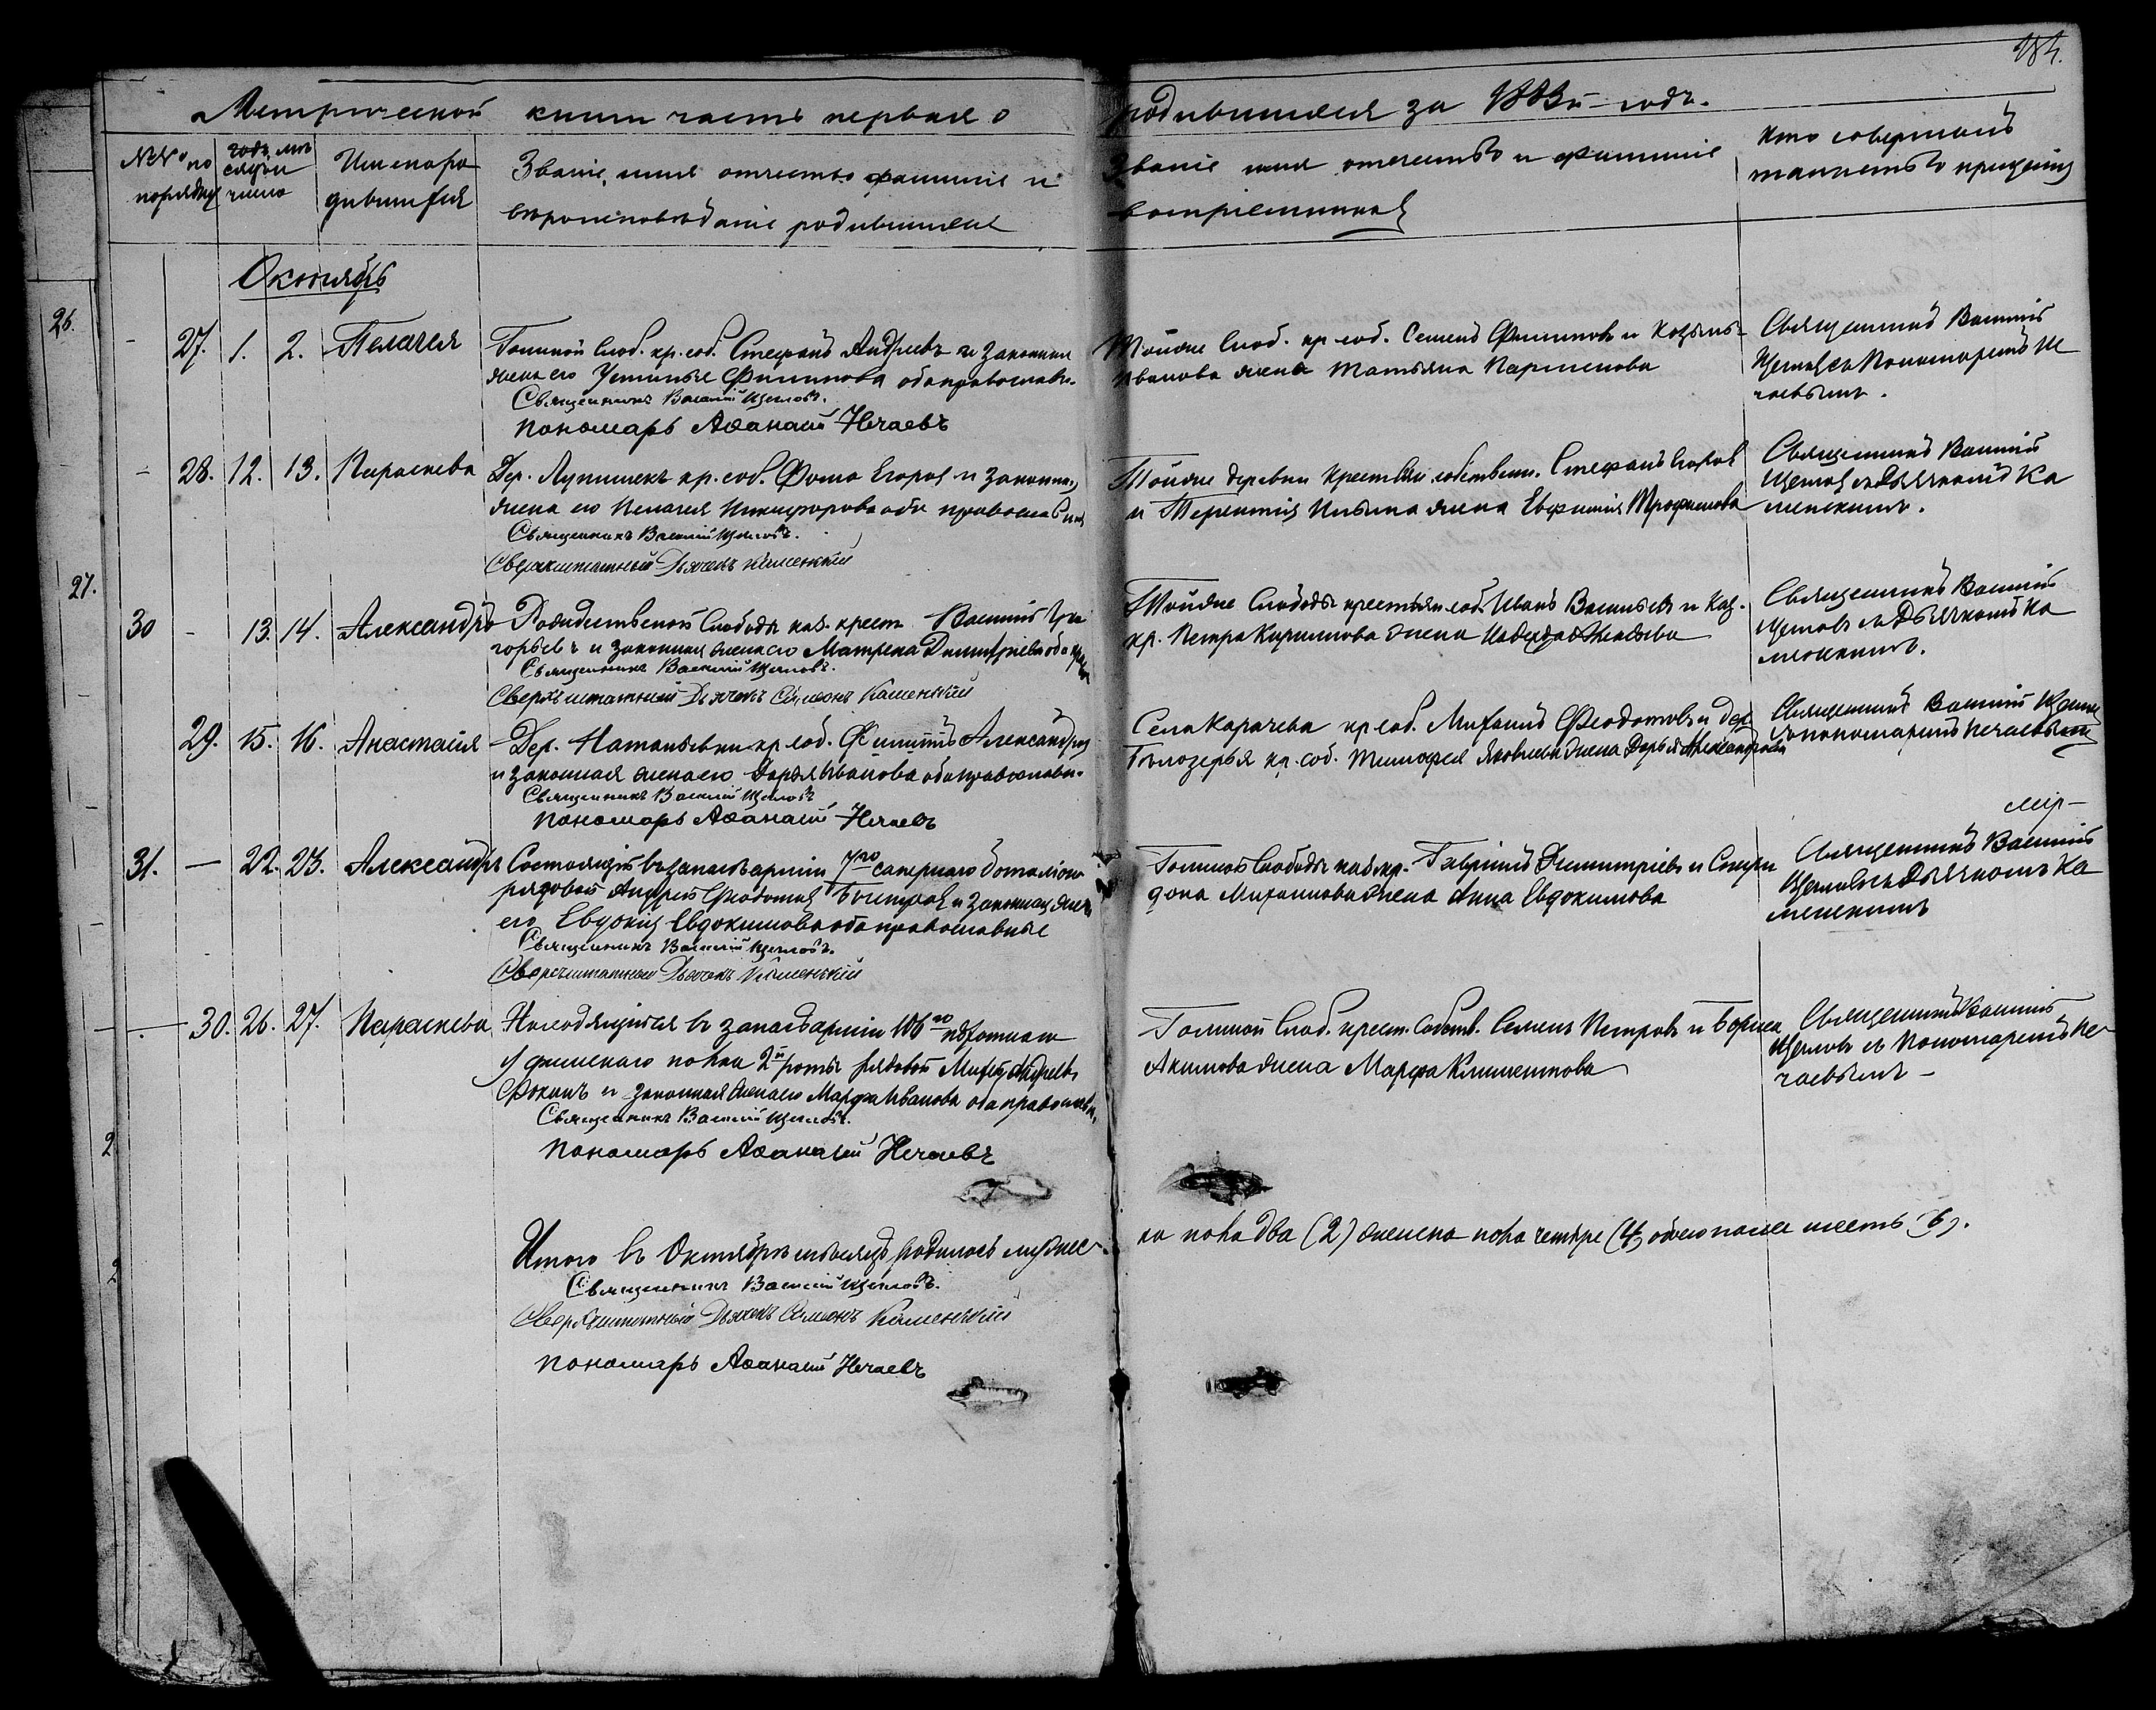 184.
Метрической книги часть первая о родившихся за 1883й годъ.
№№ по порядку
годъ, месяцъ и число
Имена родившихся
Званіе, имя отчество фамиліе и вероисповѣданіе родившихся
Званіе имя отечество и фамиліе воспріемниковъ
Кто совершалъ таинство крещенія
Октябрь
26.
- 27. 1. 2. Пелагея
слоб. кр. соб. Стефанъ Андреевъ и законная
жена его Устинья Филипова оба православн.
Священникъ Василій Щегловъ.
пономарь Аѳанасій Нечаевъ
Тойже Слоб. кр. соб. Семенъ Филиповъ и Козьмы
Иванова жена Татьяна Парменова
Священникъ Василій
Щегловъ съ Пономаремъ Не
чаевымъ.
- 28. 12. 13. Параскева
Дер. кр. соб. Фома Егоровъ и законная
жена его Пелагея Никифорова оба православныя
Священникъ Василій Щегловъ.
Сверхштатный Дьячекъ Каменскій
Тойже деревни крестьян. собствен. Стефанъ Егоровъ
и Терентія Ильина жена Евфимія Трофимова
Священникъ Василій
Щегловъ съ Дьячкомъ Ка
менскимъ.
27.
30 - 13. 14. Александръ
Рождественской Слободы каз. крест. Василій Гри
горьевъ и законная жена его Матрена Димитріева оба прав.
Священникъ Василій Щегловъ.
Сверхштатный Дьячекъ Симеонъ Каменскій
Тойже Слободы крестьян. соб. Иванъ Васильевъ и каз.
кр. Петра Кирилова жена Надежда
Священникъ Василій
Щегловъ съ Дьячкомъ Ка
менскимъ.
29. 15. 16. Анастасія
Дер. кр. соб. Филиппъ Александровъ
и законная жена его Дарья Иванова оба православн.
Священникъ Василій Щегловъ
пономарь Аѳанасій Нечаевъ
Села Карачева кр. соб. Митрофанъ Феодотовъ и дер.
Бѣлозерья кр. соб. Тимофея Яковлева жена Дарья Александрова
Священникъ Василій Щегловъ
съ пономаремъ Нечаевымъ
31. — 22. 23. Александръ
Состоящій въ запасѣ арміи 7го сапернаго баталіона
рядовой Андрей Феодотовъ и законная жена
его Евдокія Евдокимова оба православные
Священникъ Василій Щегловъ.
Сверхштатный Дьячекъ Каменскій
Слободы каз. кр. Гавріилъ Димитріевъ и Спири
дона Михаилова жена Анна Евдокимова
Священникъ Василій
Щегловъ съ Дьячкомъ Ка
менскимъ
- 30. 26. 27. Параскева
Находящійся въ запасѣ арміи 106го пѣхотнаго
Уфимскаго полка 2й роты рядовой Андреевъ
Фокинъ и законная жена его Марфа Иванова оба православн.
Священникъ Василій Щегловъ.
пономарь Аѳанасій Нечаевъ
Слоб. крест. собств. Семенъ Петровъ и Бориса
Акимова жена Марфа Климентова
Священникъ Василій
Щегловъ съ Пономаремъ Не
чаевымъ –
Итого въ Октябрѣ мѣсяцѣ родилось мужес
ка пола два (2) женска пола четыре (4) обоего пола шесть (6).
Священникъ Василій Щегловъ.
Сверхштатный Дьячекъ Симеонъ Каменскій
пономарь Аѳанасій Нечаевъ